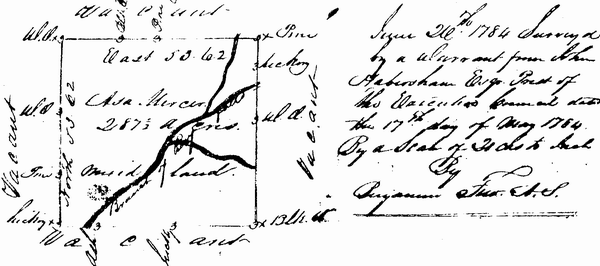 Vacant
W.O. Pine
East 53.62 hickory
Asa Mercer
287½ Acres
W.O. W.O.
Vacant
North 53.62
Vacant
Pine
mixed land
Branch
hickory Black
Ash hickory
Vacant
June 26th 1784 Survey'd
by a Warrant from John
Habersham Esqr. Prest of
the Executive Council dated
the 17th day of May 1784
By a Scale of 20 chs to Inch
By
Benjamin D.S.